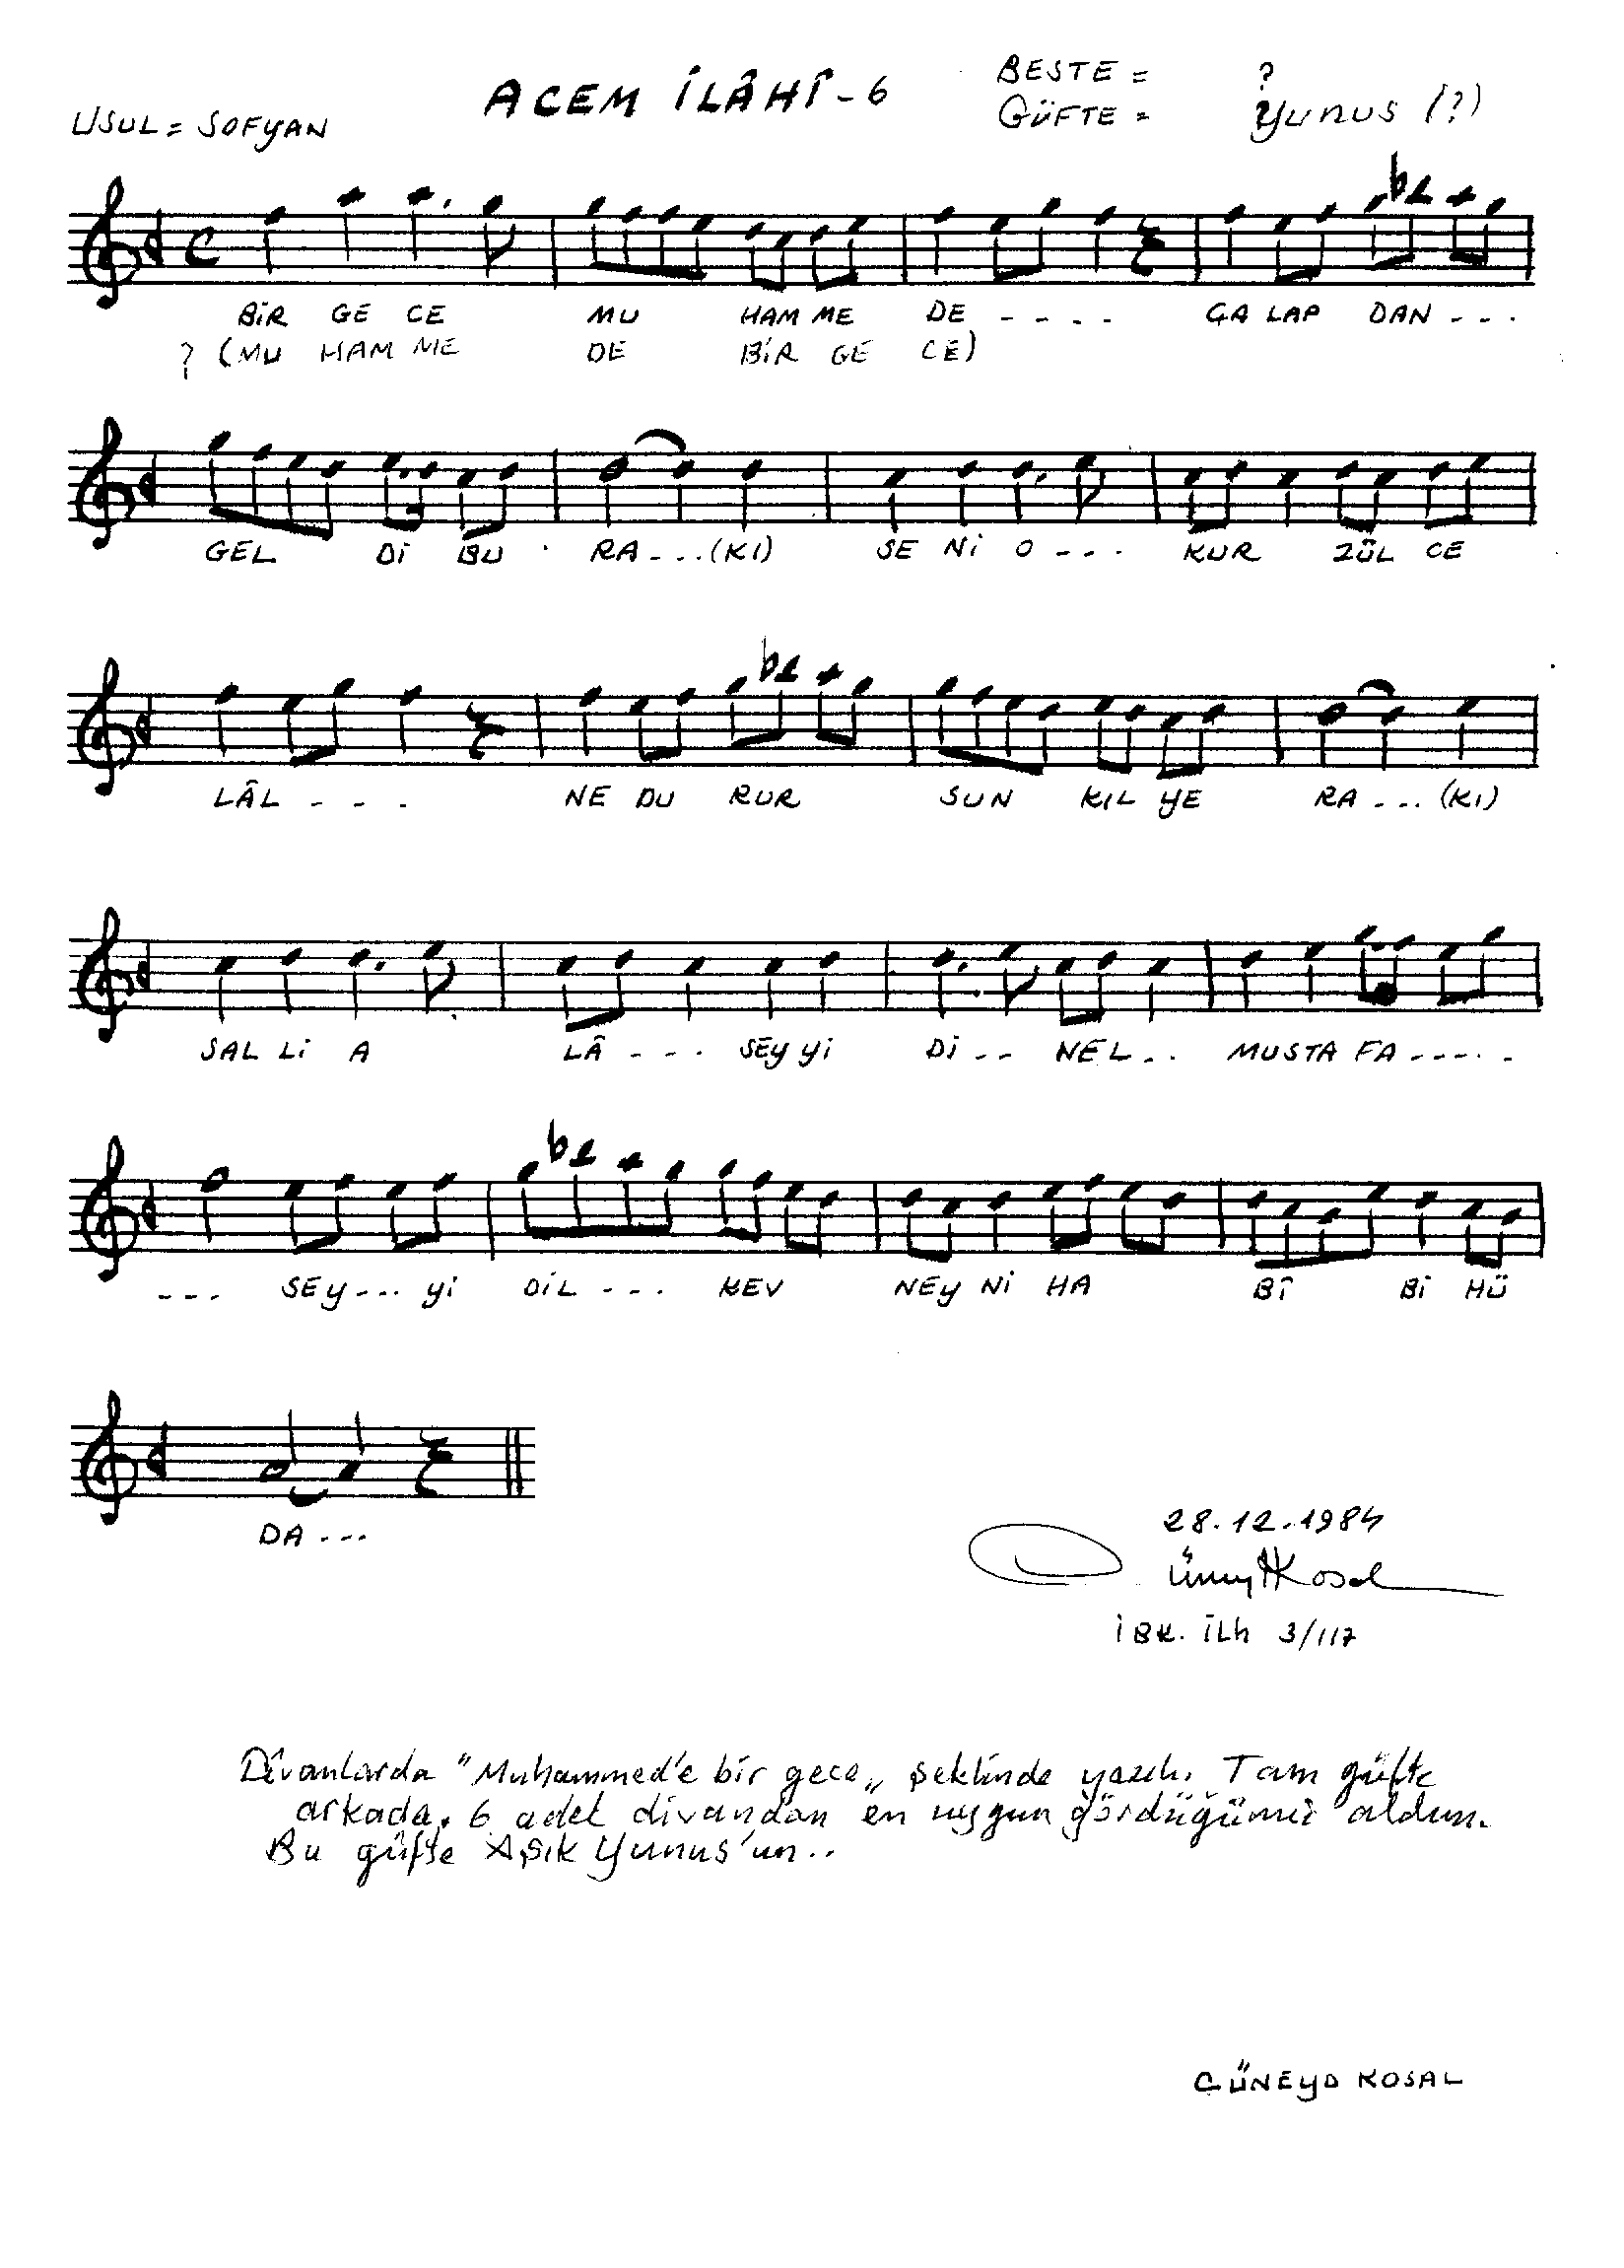 BESTE = ?
ACEM İLÂHÎ - 6
USUL = SOFYAN
GÜFTE = YUNUS (?)
BİR GE CE MU HAM ME DE - - - - ÇA LAP DAN - - -
? (MU HAM ME DE BİR GE CE)
GEL Dİ BU RA - - - (KI) SE Nİ O - - - KUR ZÜL CE
LÂL - - - NE DU RUR SUN KIL YE RA - - - (KI)
SAL Lİ A LÂ - - - SEY Yİ Dİ - - NEL - - MUSTA FA - - - - -
- - - SEY - - - Yİ DİL - - - KEV NEY Nİ HA BÎ Bİ HÜ
DA - - -
28.12.1984
Cüneyd Kosal
İBK. İLh 3/117
Dîvanlarda "Muhammed'e bir gece" şeklinde yazılı. Tam güfte
arkada. 6 adet divandan en uygun gördüğümü aldım.
Bu güfte Aşık Yunus'un..
CÜNEYD KOSAL